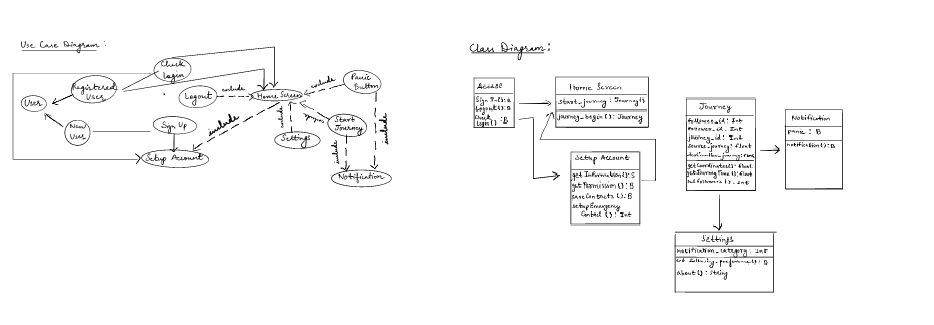 Use Case Diagram:
Check
Login
Registered
User
User
New
User
Logout
include
Home Screen
include
Panic
Button
Sign Up
include
include
Settings
Start
Journey
include
include
Setup Account
Notification
Class Diagram:
Access
Sign In(): B
Logout(): B
Check
Login(): B
Home Screen
start_journey: Journey()
journey_begin(): Journey
Setup Account
get Information(): S
get Permission(): B
save Contacts(): B
setup Emergency
Contact(): Int
Journey
followee_id: Int
follower_id: Int
journey_id: Int
source_journey: float
destination_journey: float
get Coordinates(): float
get Journey Time(): float
followers(): Int
Notification
panic: B
notification(): B
Settings
notification_category: Int
preference(): B
about(): String